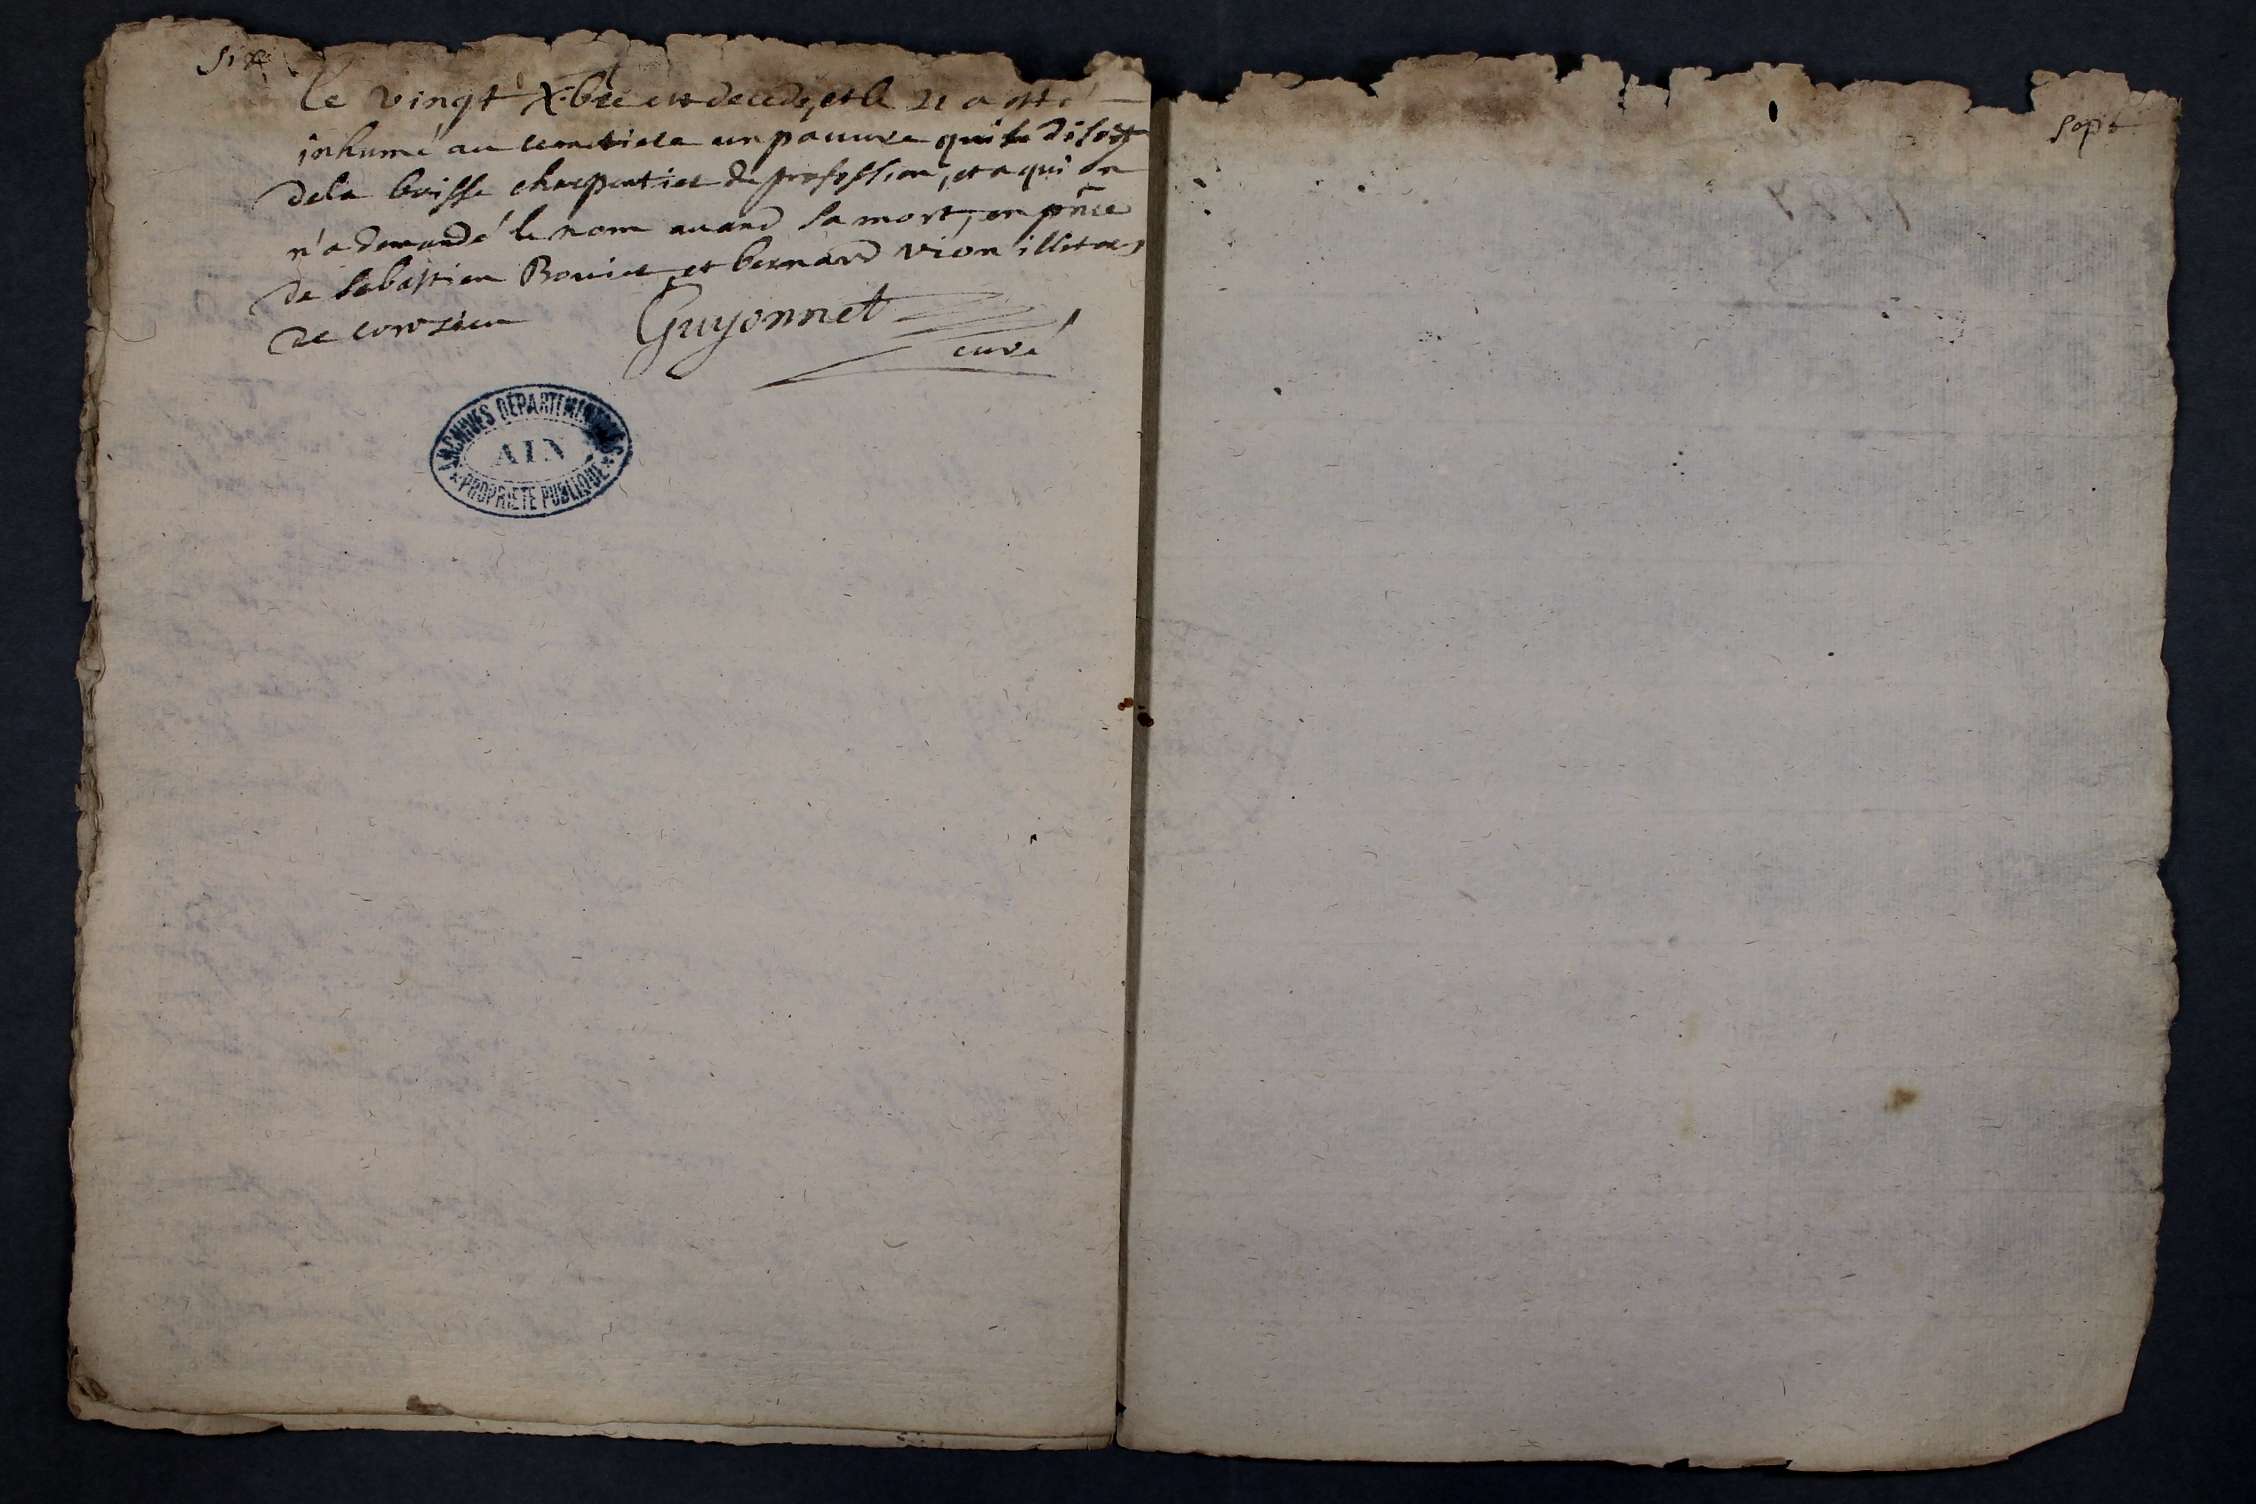 Six
Le vingt Xbre est decedé, et le 21 a esté
inhumé au cemetiere un pauvre qui se disoit
de la boisse charpentier de profession, et a qui on
n'a demandé le nom avand sa mort, en pnce
de Sebastien Bouvier et bernard vion illiteres
de corvzieu
Guyonnet
curé
ARCHIVES DÉPARTEMENTALES
AIN
PROPRIETE PUBLIQUE
Sept